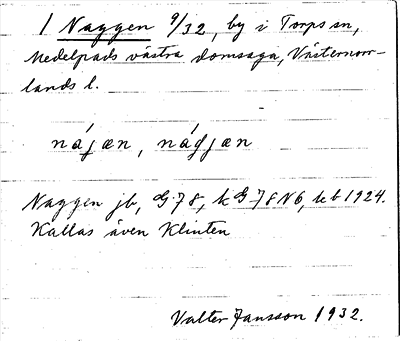 1 Naggen 9/32, by i Torps sn,
Medelpads västra domsaga, Västernorr-
lands l.
nájæn, nágjæn
Naggen jb, G78, k G78 N6, kb 1924.
Kallas även Klinten
Valter Jansson 1932.